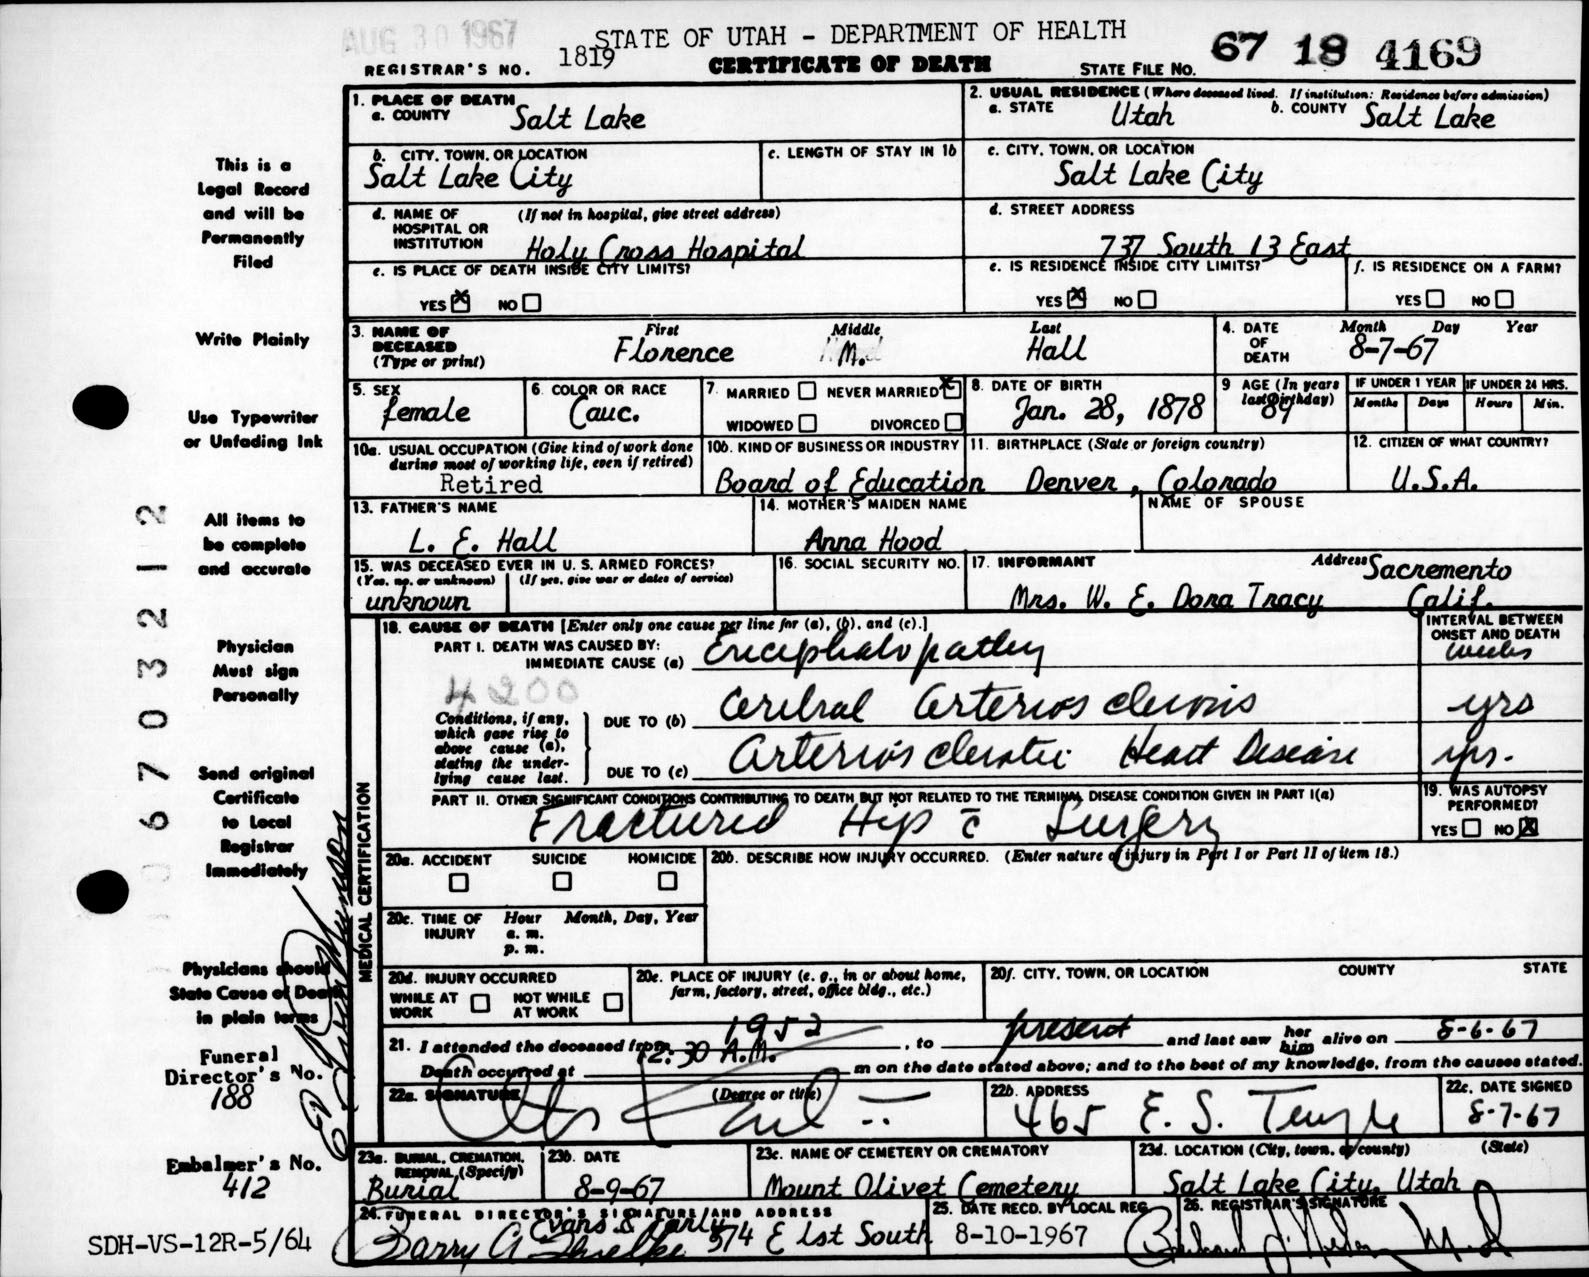 AUG 30 1967
STATE OF UTAH - DEPARTMENT OF HEALTH
REGISTRAR'S NO. 1819
CERTIFICATE OF DEATH
STATE FILE NO. 67 18 4169
1. PLACE OF DEATH
a. COUNTY Salt Lake
2. USUAL RESIDENCE (Where deceased lived. If institution: Residence before admission)
a. STATE Utah b. COUNTY Salt Lake
b. CITY, TOWN, OR LOCATION
Salt Lake City
c. LENGTH OF STAY IN 1b
c. CITY, TOWN, OR LOCATION
Salt Lake City
d. NAME OF HOSPITAL OR INSTITUTION (If not in hospital, give street address)
Holy Cross Hospital
d. STREET ADDRESS
737 South 13 East
e. IS PLACE OF DEATH INSIDE CITY LIMITS?
YES X NO
e. IS RESIDENCE INSIDE CITY LIMITS?
YES X NO
f. IS RESIDENCE ON A FARM?
YES NO
3. NAME OF DECEASED (Type or print)
First Middle Last
Florence M. Hall
4. DATE OF DEATH Month Day Year
8-7-67
5. SEX
female
6. COLOR OR RACE
Cauc.
7. MARRIED NEVER MARRIED X
WIDOWED DIVORCED
8. DATE OF BIRTH
Jan. 28, 1878
9 AGE (In years last birthday)
89
IF UNDER 1 YEAR
Months Days
IF UNDER 24 HRS.
Hours Min.
10a. USUAL OCCUPATION (Give kind of work done during most of working life, even if retired)
Retired
10b. KIND OF BUSINESS OR INDUSTRY
Board of Education
11. BIRTHPLACE (State or foreign country)
Denver, Colorado
12. CITIZEN OF WHAT COUNTRY?
U.S.A.
13. FATHER'S NAME
L. E. Hall
14. MOTHER'S MAIDEN NAME
Anna Hood
NAME OF SPOUSE
15. WAS DECEASED EVER IN U. S. ARMED FORCES?
(Yes, no, or unknown) (If yes, give war or dates of service)
unknown
16. SOCIAL SECURITY NO.
17. INFORMANT Address
Mrs. W. E. Dora Tracy Sacremento Calif.
MEDICAL CERTIFICATION
18. CAUSE OF DEATH [Enter only one cause per line for (a), (b), and (c).]
INTERVAL BETWEEN ONSET AND DEATH
PART I. DEATH WAS CAUSED BY:
IMMEDIATE CAUSE (a) Encephalopathy weeks
4200
Conditions, if any, which gave rise to above cause (a), stating the underlying cause last.
DUE TO (b) Cerebral Arteriosclerosis yrs
DUE TO (c) Arteriosclerotic Heart Disease yrs.
PART II. OTHER SIGNIFICANT CONDITIONS CONTRIBUTING TO DEATH BUT NOT RELATED TO THE TERMINAL DISEASE CONDITION GIVEN IN PART I(a)
Fractured Hip c̄ Surgery
19. WAS AUTOPSY PERFORMED?
YES NO X
20a. ACCIDENT SUICIDE HOMICIDE
20b. DESCRIBE HOW INJURY OCCURRED. (Enter nature of injury in Part I or Part II of item 18.)
20c. TIME OF INJURY Hour Month, Day, Year
a. m.
p. m.
20d. INJURY OCCURRED
WHILE AT WORK NOT WHILE AT WORK
20e. PLACE OF INJURY (e. g., in or about home, farm, factory, street, office bldg., etc.)
20f. CITY, TOWN, OR LOCATION COUNTY STATE
21. I attended the deceased from 1952, to present and last saw her him alive on 8-6-67
Death occurred at 12:30 A.M. m on the date stated above; and to the best of my knowledge, from the causes stated.
22a. SIGNATURE (Degree or title)
22b. ADDRESS
465 E. S. Temple
22c. DATE SIGNED
8-7-67
23a. BURIAL, CREMATION, REMOVAL (Specify)
Burial
23b. DATE
8-9-67
23c. NAME OF CEMETERY OR CREMATORY
Mount Olivet Cemetery
23d. LOCATION (City, town, or county) (State)
Salt Lake City, Utah
24. FUNERAL DIRECTOR'S SIGNATURE AND ADDRESS
Evans & Early 574 E 1st South
Barry A
25. DATE RECD. BY LOCAL REG.
8-10-1967
26. REGISTRAR'S SIGNATURE
This is a
Legal Record
and will be
Permanently
Filed
Write Plainly
Use Typewriter
or Unfading Ink
All items to
be complete
and accurate
Physician
Must sign
Personally
Send original
Certificate
to Local
Registrar
Immediately
Physicians should
State Cause of Death
in plain terms
Funeral
Director's No.
188
Embalmer's No.
412
SDH-VS-12R-5/64
0670321 2